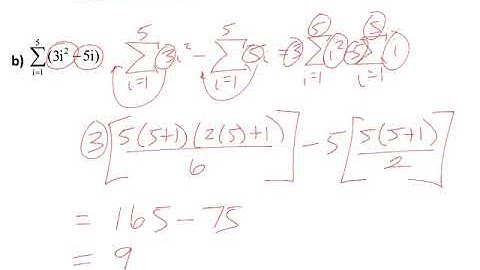 b) \sum_{i=1}^{5} (3i² - 5i) \sum_{i=1}^{5} 3i² - \sum_{i=1}^{5} 5i = 3 \sum_{i=1}^{5} i² - 5 \sum_{i=1}^{5} i
3 [ 5(5+1)(2(5)+1) / 6 ] - 5 [ 5(5+1) / 2 ]
= 165 - 75
= 9